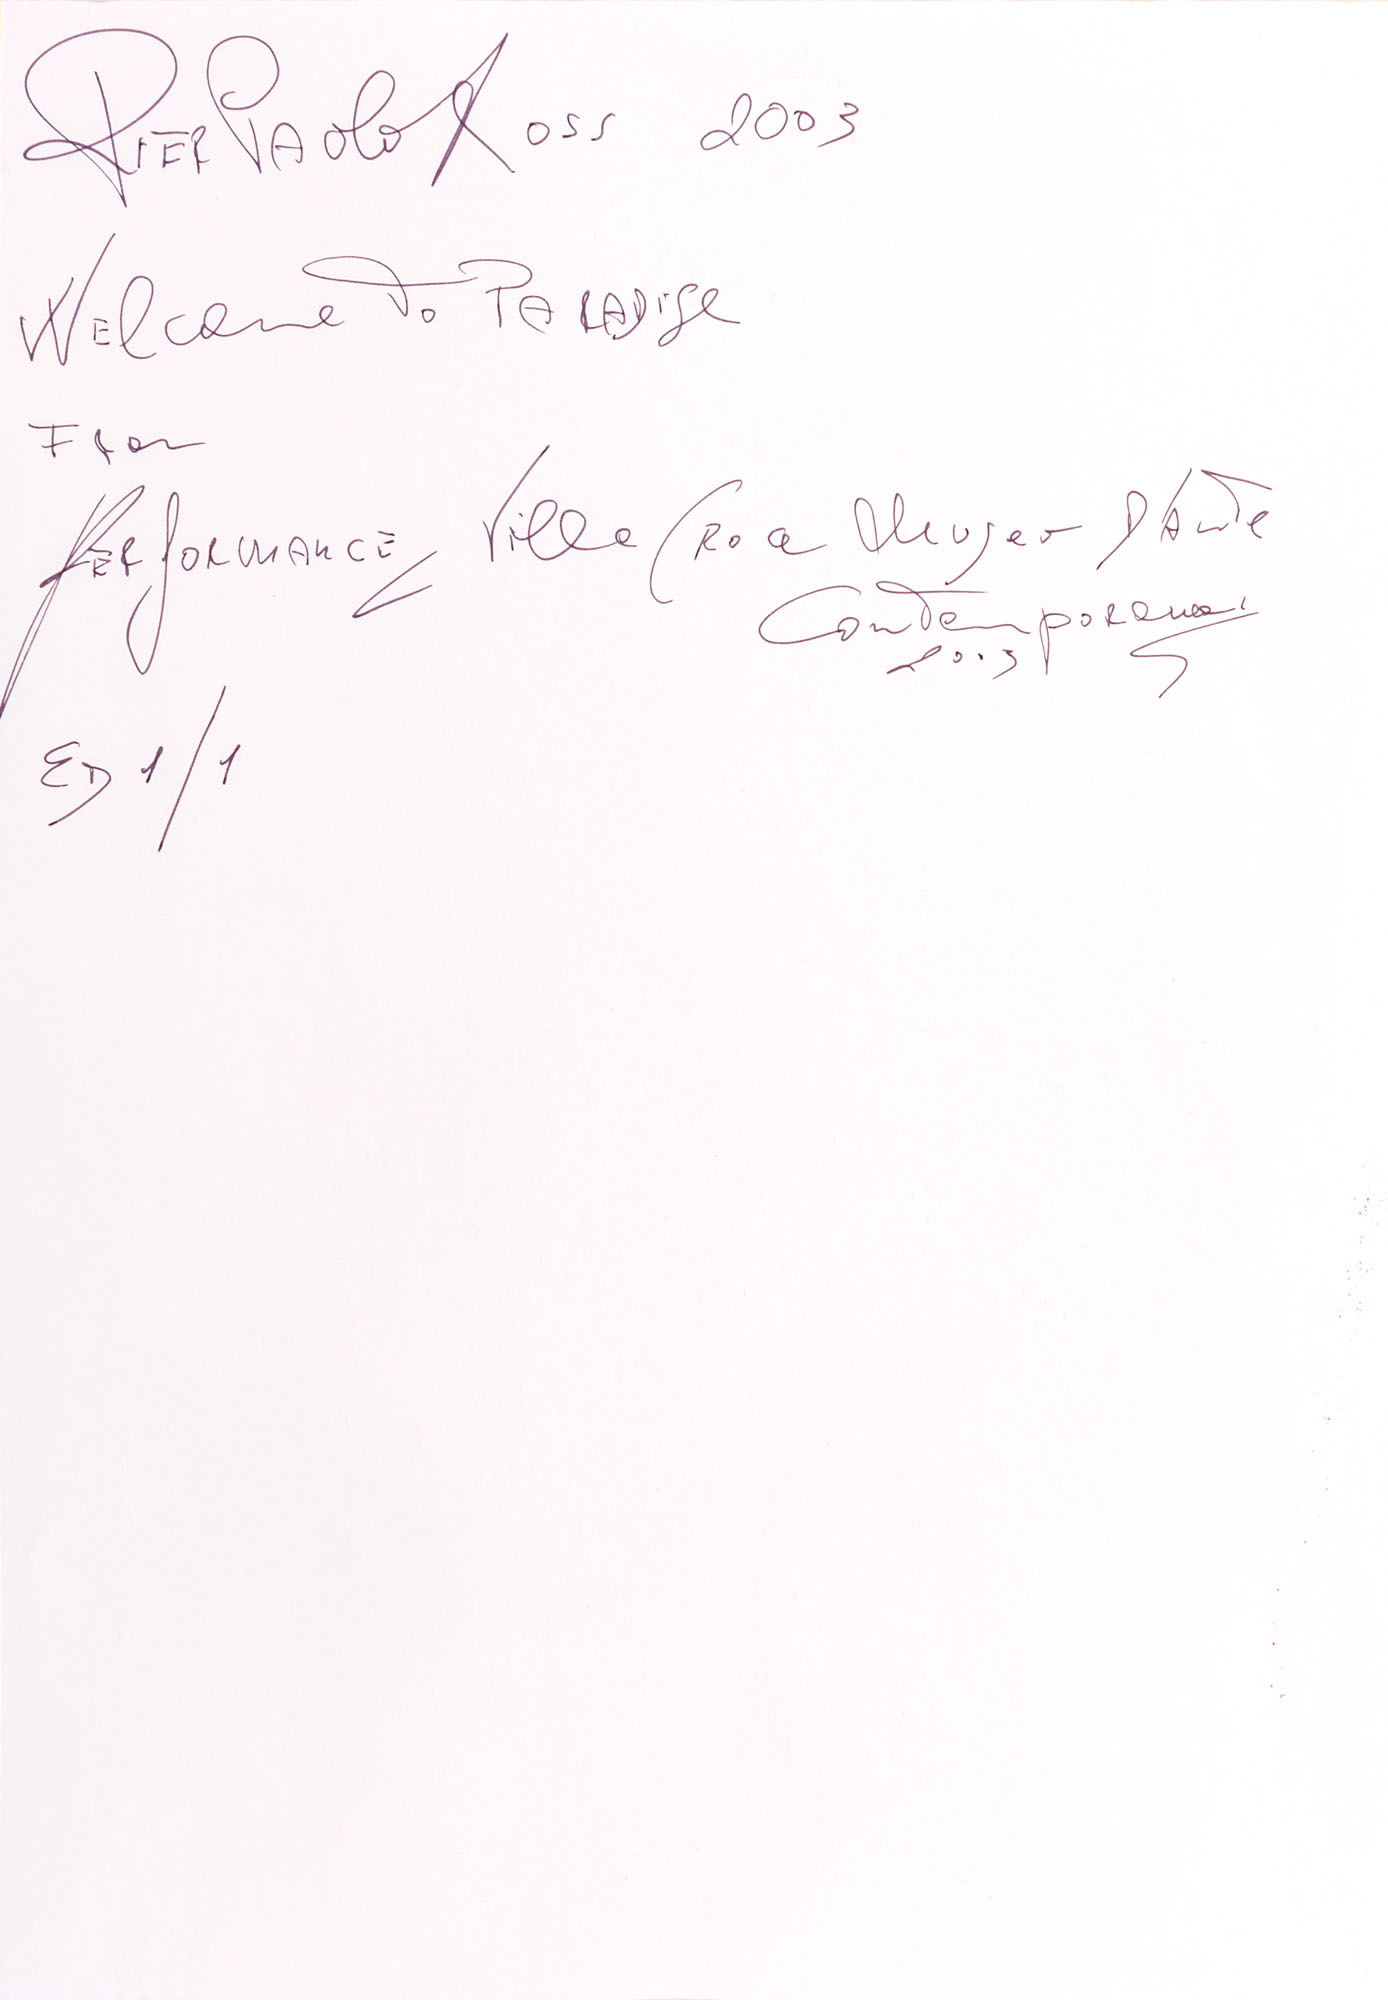 PierPaolo Koss 2003
Welcome To PARADISE
From
PERFORMANCE Villa Croce Museo D'Arte
Contemporanea
2003
ED 1/1